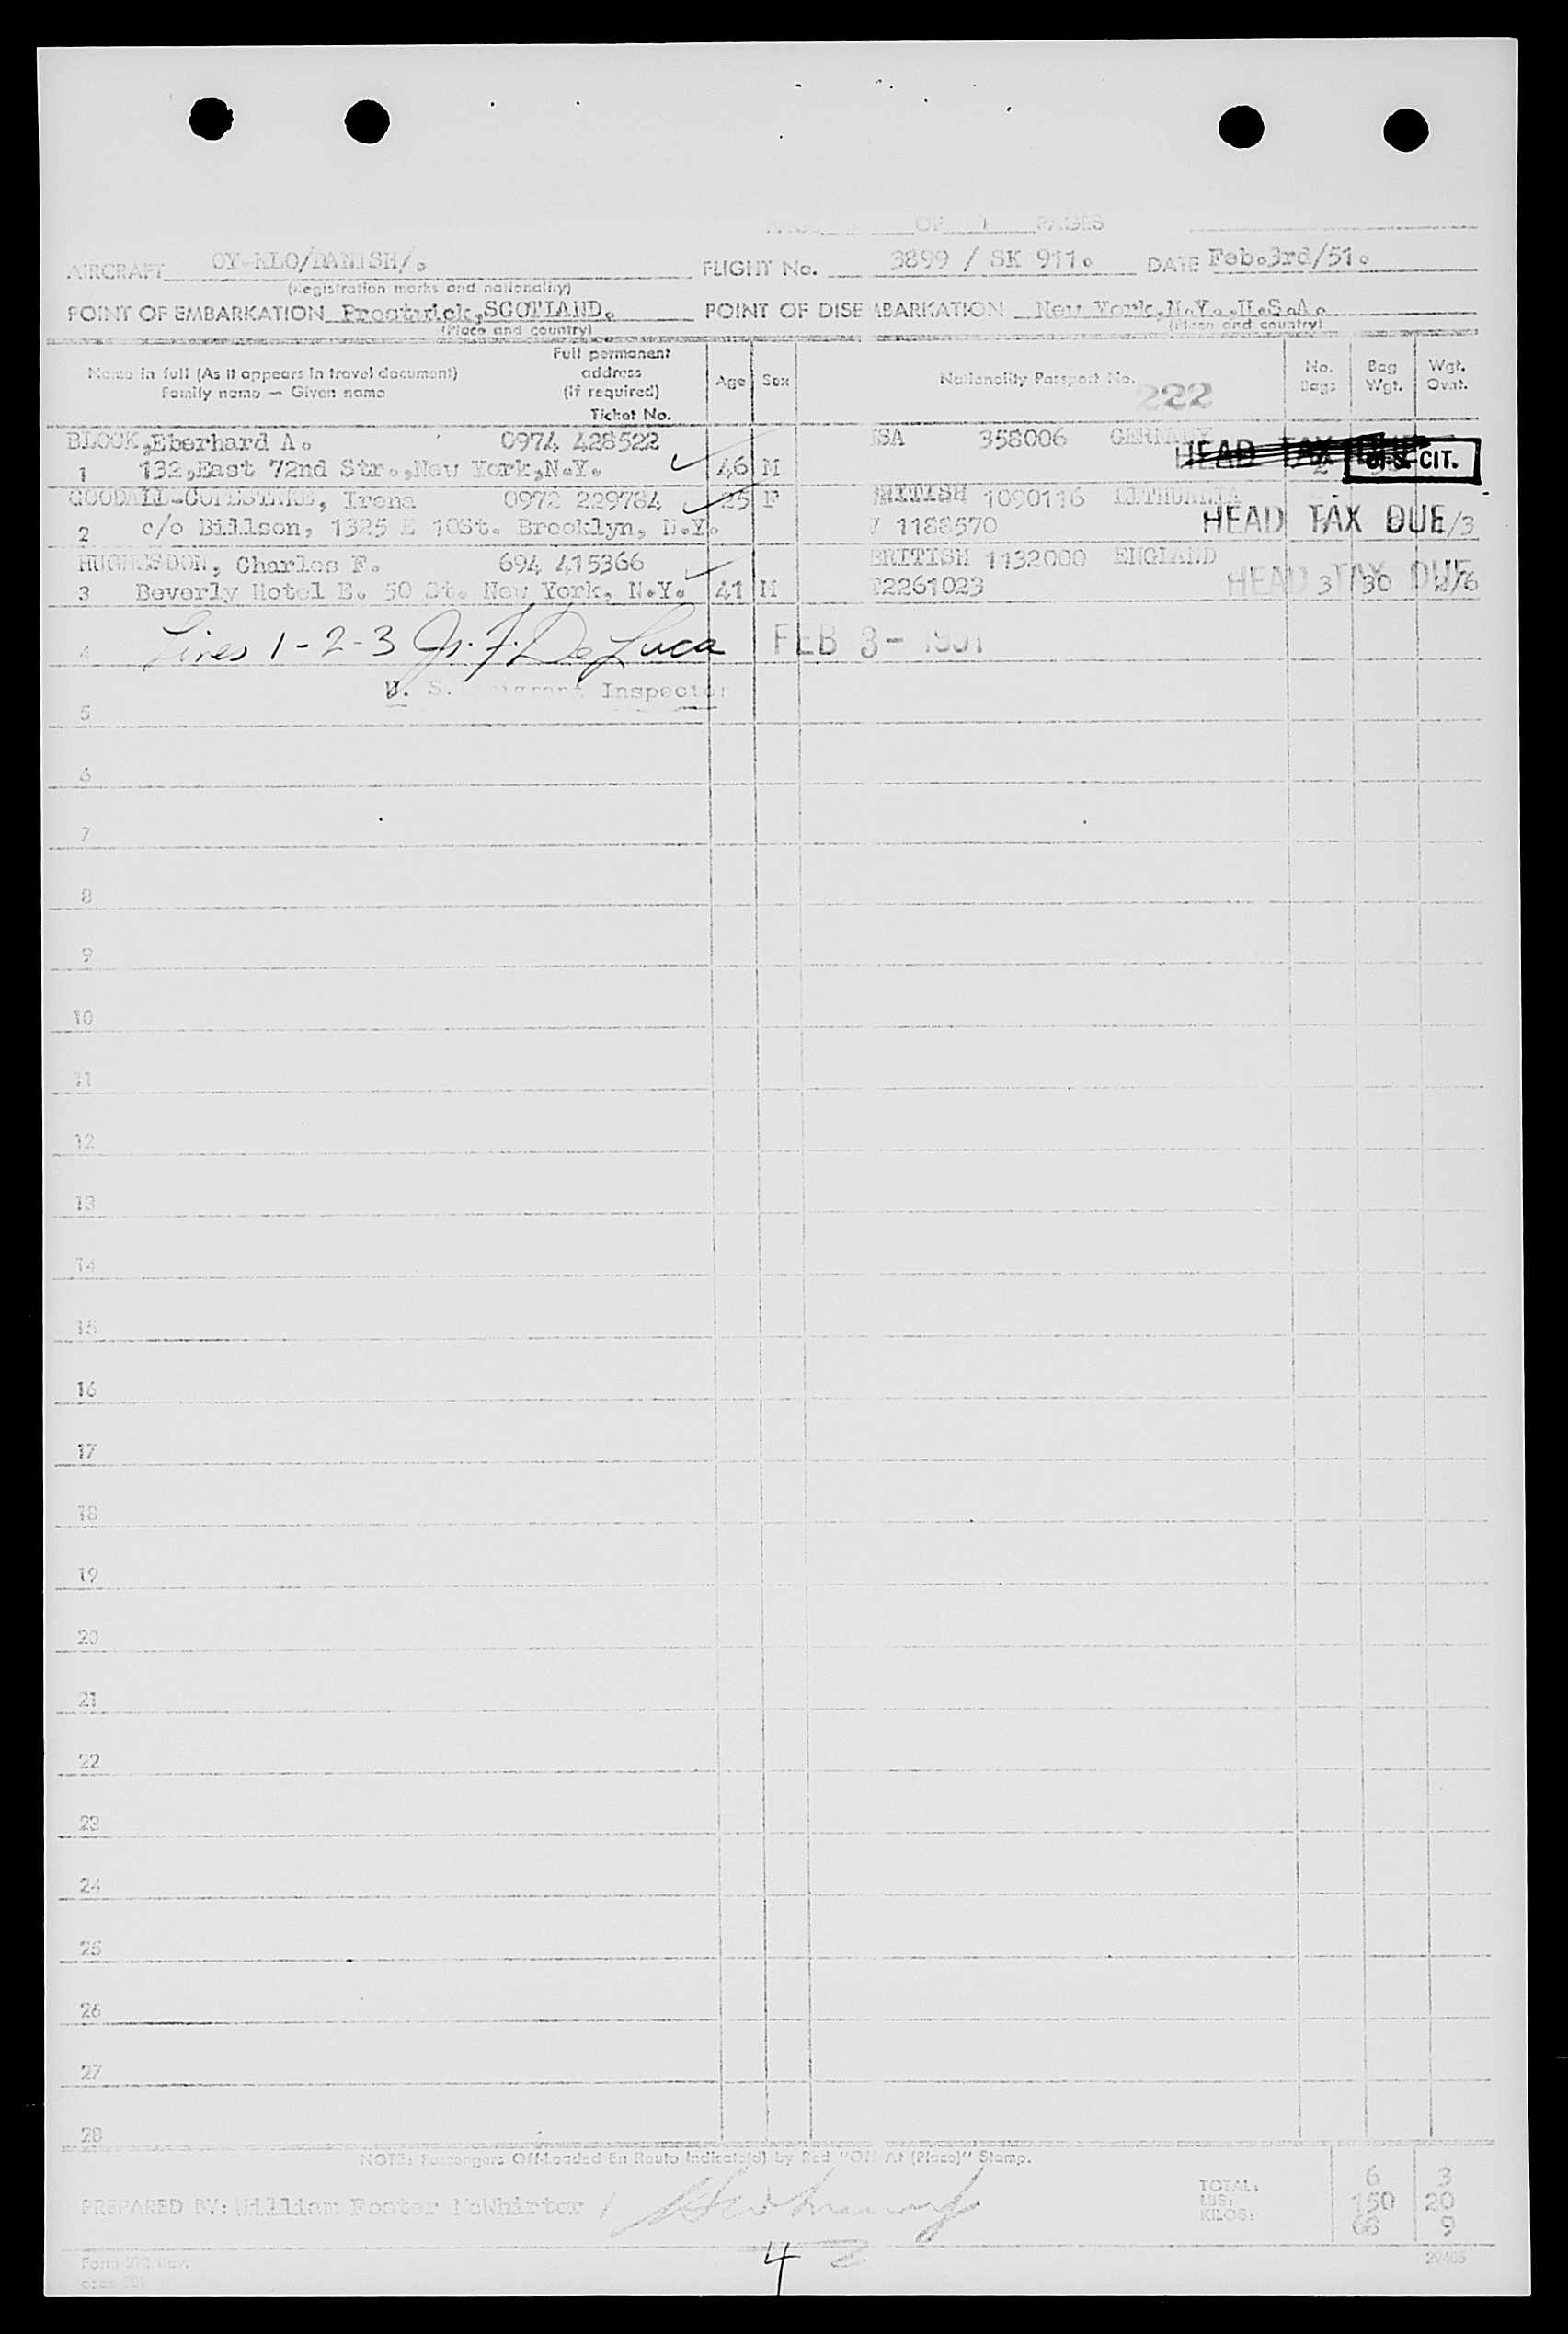 OF 1 PAGES
AIRCRAFT OY-KLO/DANISH/. FLIGHT No. 3899 / SK 911. DATE Feb.3rd/51.
(Registration marks and nationality)
POINT OF EMBARKATION Prestwick,SCOTLAND. POINT OF DISEMBARKATION New York,N.Y.,U.S.A.
(Place and country) (Place and country)
Name in full (As it appears in travel document)
Family name — Given name
Full permanent
address
(if required)
Ticket No.
Age Sex Nationality Passport No. No. Bags Bag Wgt. Wgt. Ovwt.
222
BLOCK,Eberhard A. 0974 428522 USA 358006 GERMANY
1 132,East 72nd Str.,New York,N.Y. 46 M HEAD TAX CIT.
GOODALL-COPESTAKE, Irena 0972 229784 25 F BRITISH 1090116 LITHUANIA
2 c/o Billson, 1325 E 10St. Brooklyn, N.Y. 1188570 HEAD TAX DUE /3
HUGHESDON, Charles F. 694 415366 BRITISH 1132000 ENGLAND
3 Beverly Hotel E. 50 St. New York, N.Y. 41 M 2261023 HEAD TAX DUE 3 /30 2/6
4 Lines 1-2-3 Js. F. De Luca FEB 3 - 1951
U. S. Immigrant Inspector
5
6
7
8
9
10
11
12
13
14
15
16
17
18
19
20
21
22
23
24
25
26
27
28
NOTE: Passengers Off-Loaded En Route Indicate(d) by Red "Off At (Place)" Stamp.
PREPARED BY: William Foster McWhirter /
TOTAL: 6 3
LBS: 150 20
KILOS: 68 9
4 2
Form 202 Rev.
29405